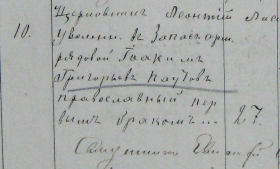 10. Церковникъ Леонтій
Уволен. въ Запасъ арм.
рядовой Іоакимъ
Григорьевъ Каутовъ
православный пер
вымъ бракомъ... 27.